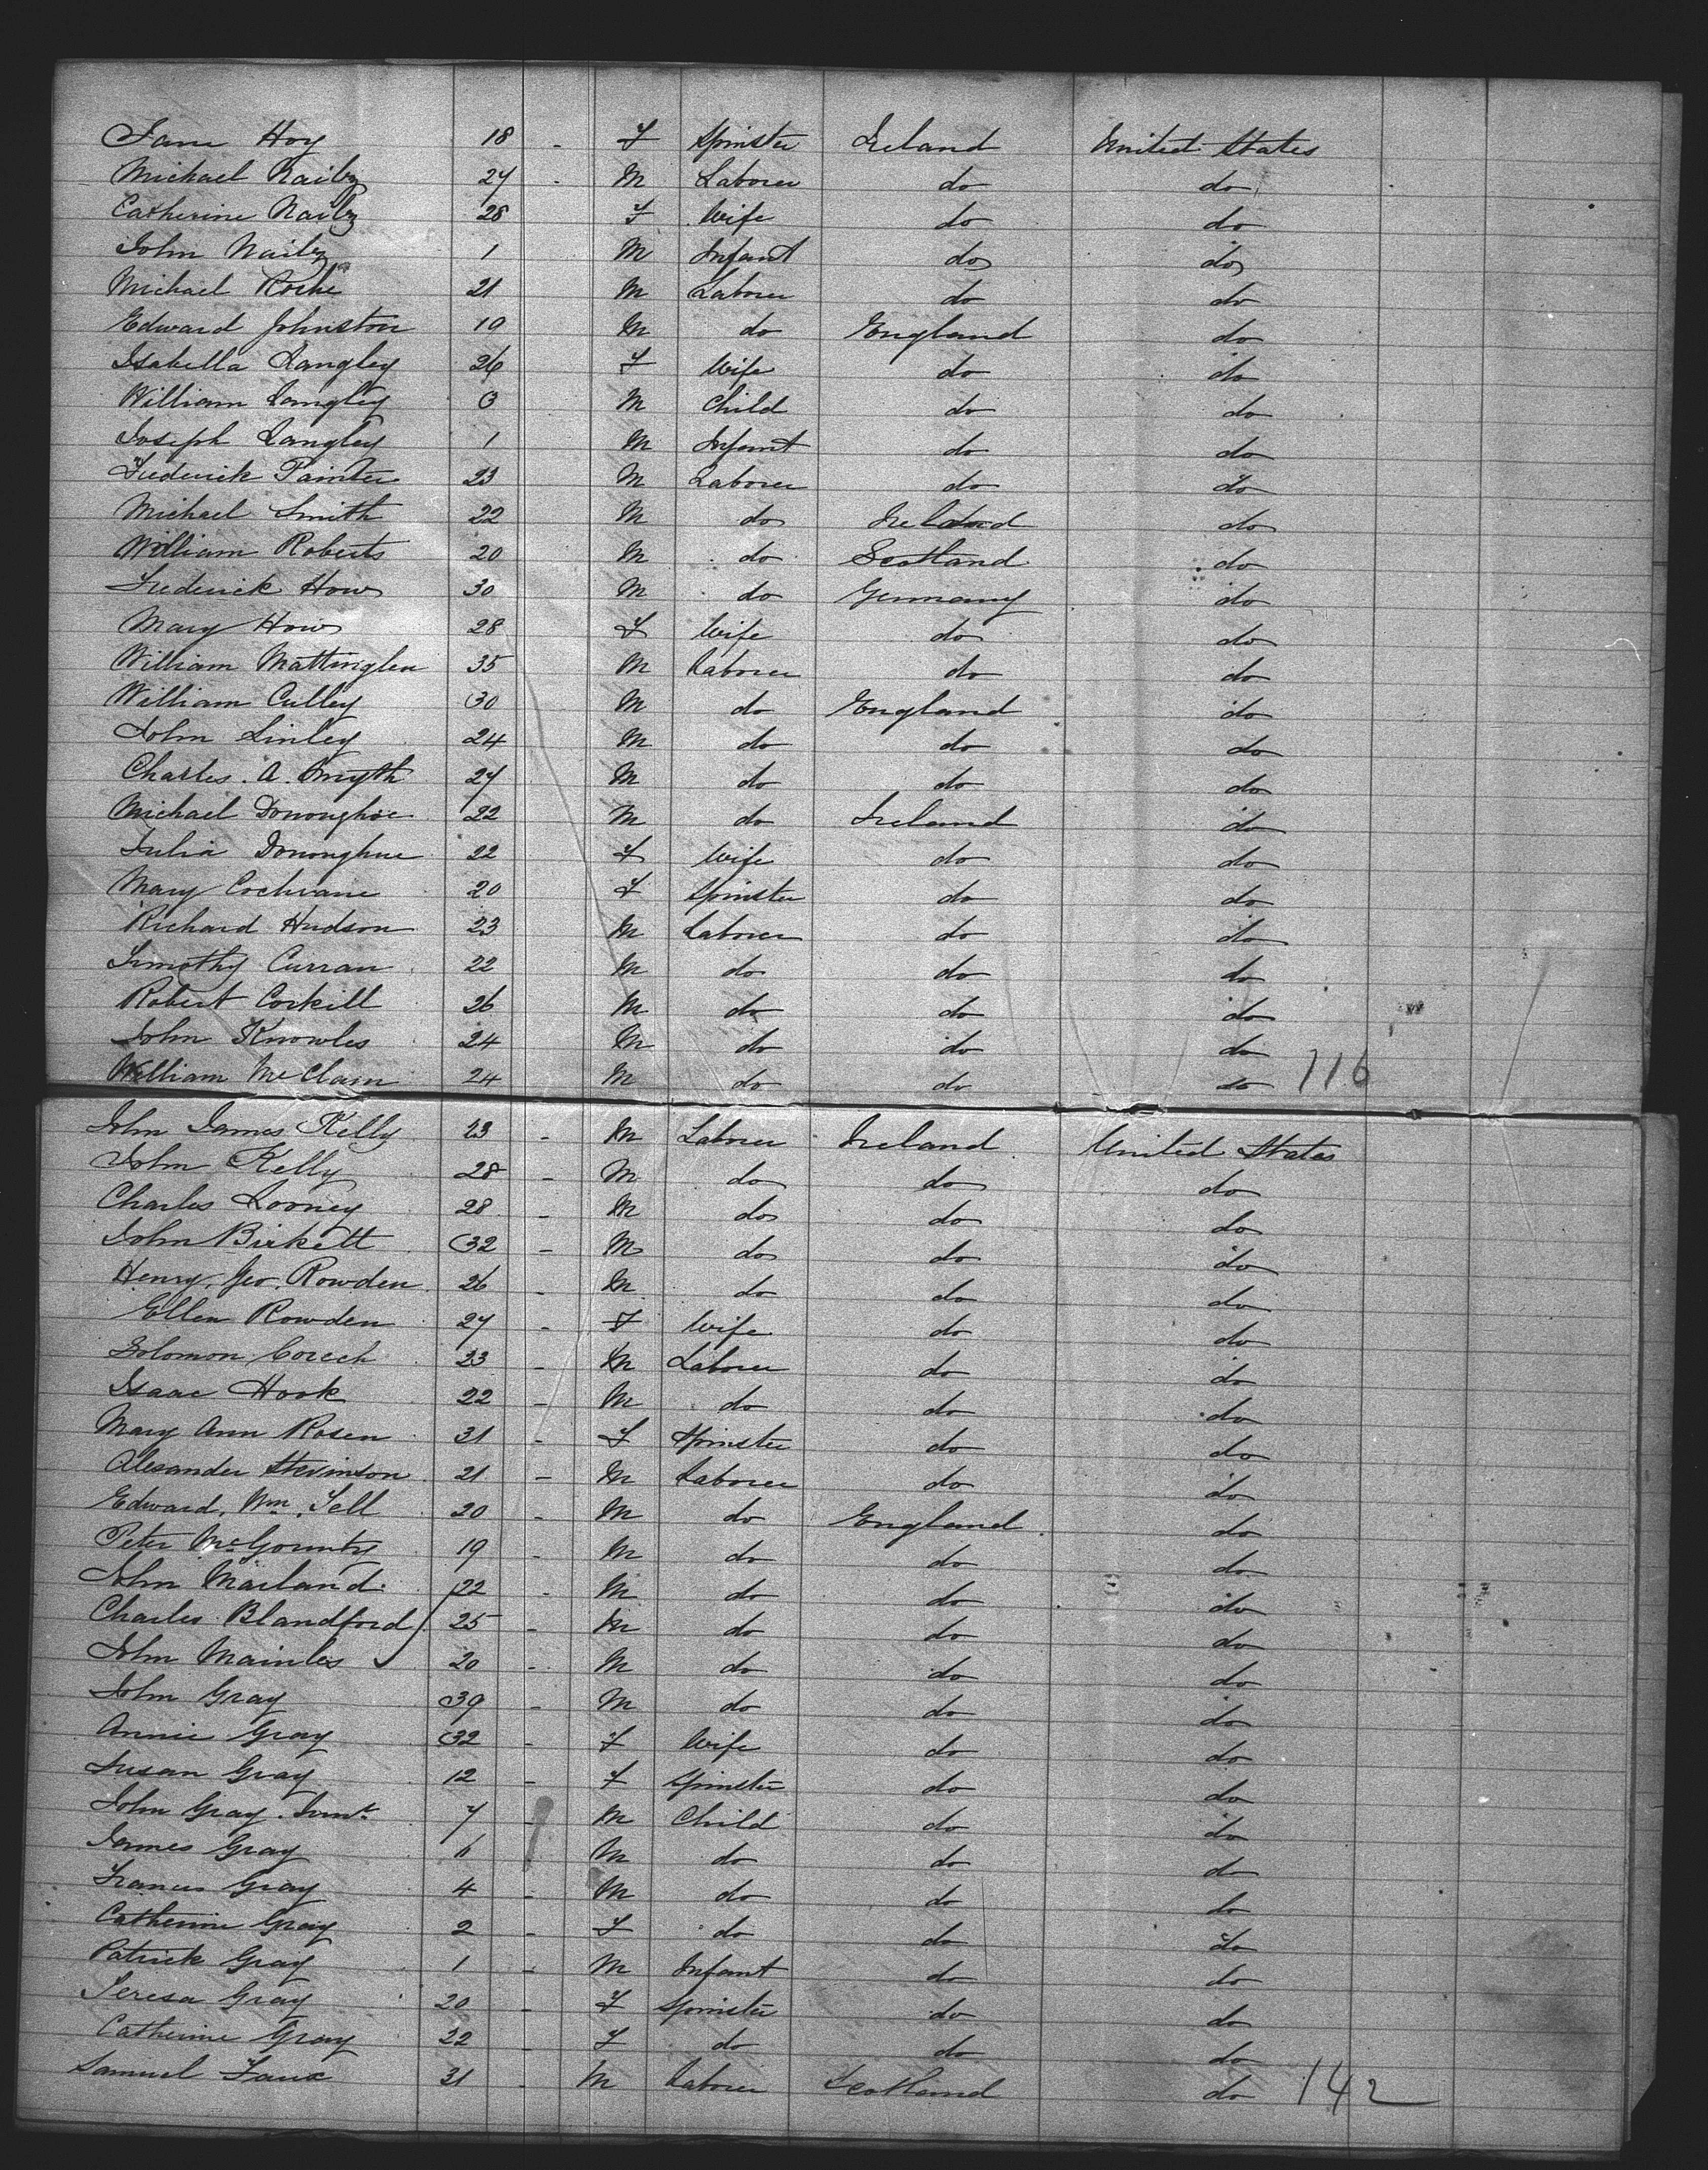 Jane Hoy 18 - F Spinster Ireland United States
Michael Naily 27 - M Laborer do do
Catherine Naily 28 F Wife do do
John Naily 1 M Infant do do
Michael Roche 21 M Laborer do do
Edward Johnston 19 M do England do
Isabella Langley 26 F Wife do do
William Langley 3 M Child do do
Joseph Langley 1 M Infant do do
Frederick Painter 23 M Laborer do do
Michael Smith 22 M do Ireland do
William Roberts 20 M do Scotland do
Frederick How 30 M do Germany do
Mary How 28 F Wife do do
William 35 M Laborer do do
William Culley 30 M do England do
John Linley 24 M do do do
Charles . A . Smyth 27 M do do do
Michael Donoughoe 22 M do Ireland do
Julia Donoughue 22 F Wife do do
Mary Cochrane 20 F Spinster do do
Richard Hudson 23 M Laborer do do
Timothy Curran 22 M do do do
Robert Corkill 26 M do do do
John Knowles 24 M do do do
William McClain 24 M do do do 116
John James Kelly 23 - M Laborer Ireland United States
John Kelly 28 - M do do do
Charles Looney 28 - M do do do
John Birkett 32 - M do do do
Henry. Geo. Rowden 26 - M do do do
Ellen Rowden 27 - F Wife do do
Solomon 23 - M Laborer do do
Isaac Hook 22 - M do do do
Mary Ann Rosen 31 - F Spinster do do
Alexander Stevinson 21 - M Laborer do do
Edward. Wm. Tell 20 - M do England do
Peter 19 - M do do do
John Marland 22 - M do do do
Charles Blandford 25 - M do do do
John Mainles 20 - M do do do
John Gray 39 - M do do do
Annie Gray 32 - F Wife do do
Susan Gray 12 - F Spinster do do
John Gray . Junr 7 - M Child do do
James Gray 6 M do do do
Francis Gray 4 - M do do do
Catherine Gray 2 - F do do do
Patrick Gray 1 - M Infant do do
Teresa Gray 20 - F Spinster do do
Catherine Gray 22 - F do do do
Samuel 31 - M Laborer Scotland do 142